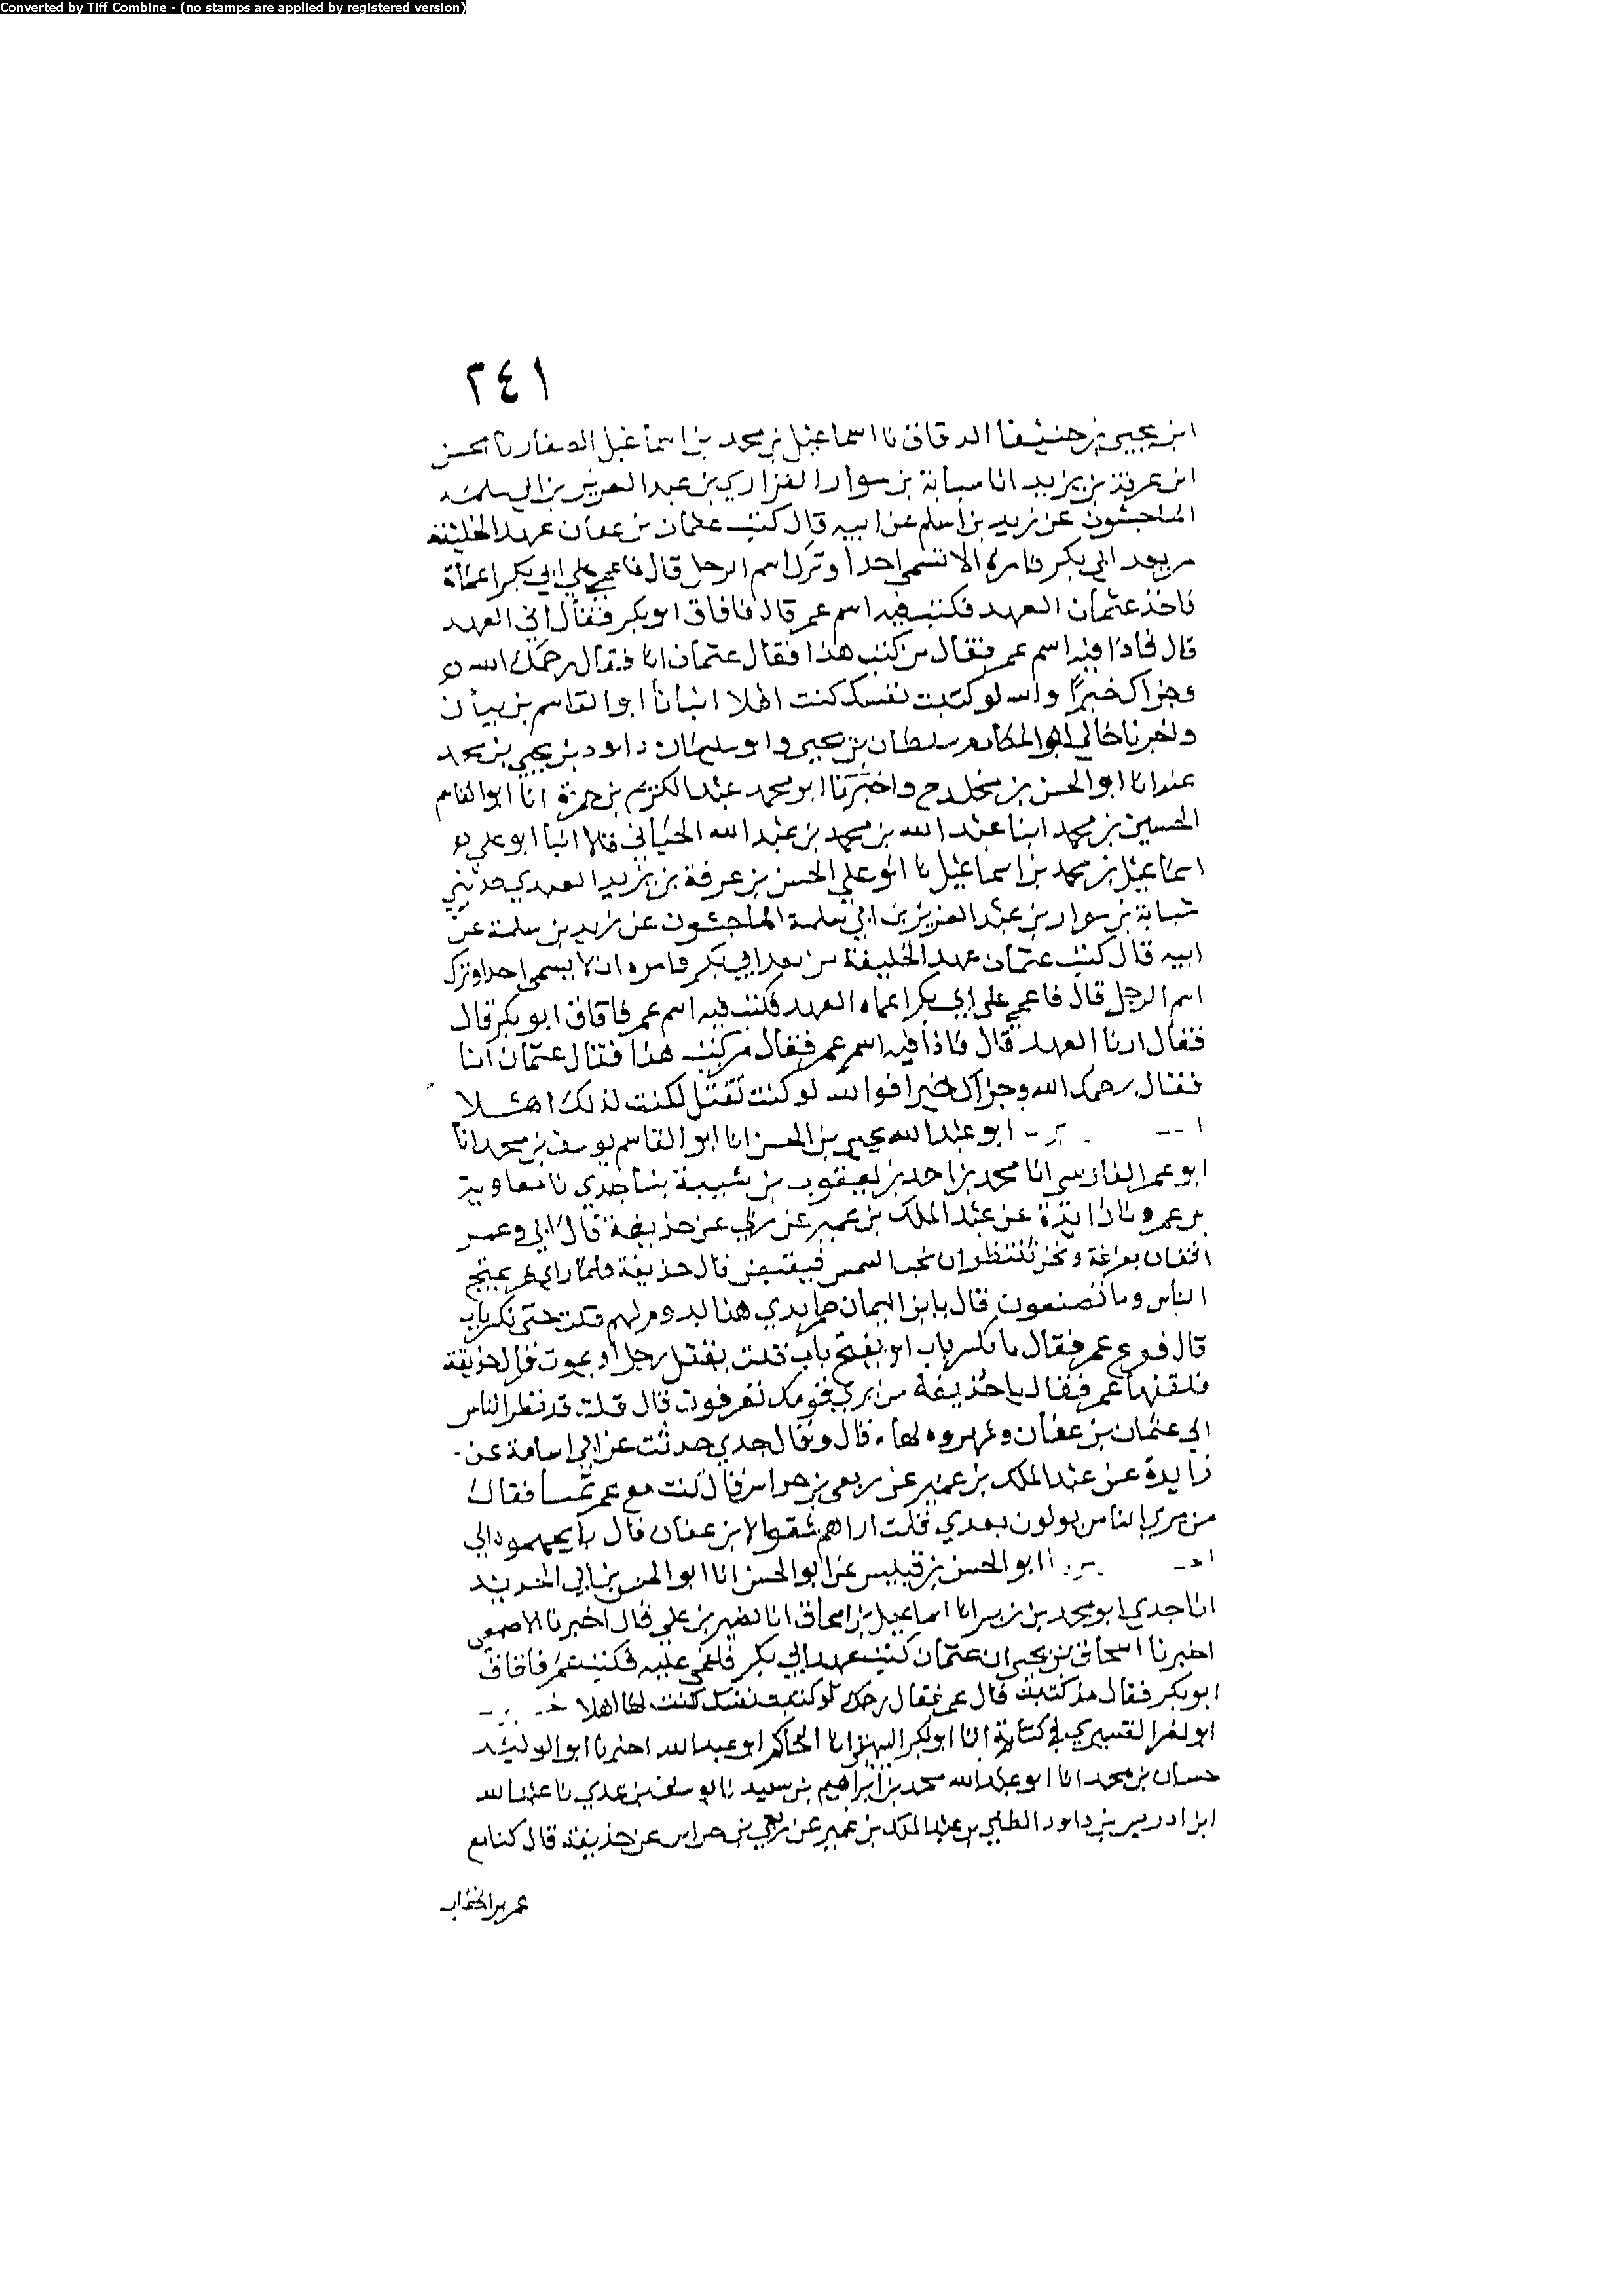 Converted by Tiff Combine - (no stamps are applied by registered version)
٣٤١
ابن يحيى بن حنيفا الدقاق نا اسماعيل بن محمد بن اسماعيل الصفار نا الحسن
ابن عرفة بن يزيد انا شبابة بن سوار الفزاري بن عبد العزيز بن ابي سلمة
الماجشون عن زيد بن اسلم عن ابيه قال كتب عثمان بن عفان عهد الخليفة
من بعد ابي بكر فامره الا تسمى احدا وترك اسم الرجل قال فاغمي على ابي بكر اغماة
فاخذ عثمان العهد فكتب فيه اسم عمر قال فافاق ابو بكر فقال ارني العهد
قال فاذا فيه اسم عمر فقال من كتب هذا فقال عثمان انا فقال رحمك الله
وجزاك خيرا والله لو كتبت نفسك كنت اهلا انبانا ابو القاسم بن بيان
واخبرنا خالي ابو المكارم سلطان بن يحيى وابو سليمان داود بن يحيى بن محمد
عنه انا ابو الحسن بن مخلد ح واخبرنا ابو محمد عبد الكريم بن حمزة انا ابو القاسم
الحسين بن محمد ابنا عبد الله بن محمد بن عبد الله الحناني قالا انبا ابو علي
اسماعيل بن محمد بن اسماعيل نا ابو علي الحسن بن عرفة بن يزيد العبدي حدثني
شبابة بن سوار بن عبد العزيز بن ابي سلمة الماجشون عن زيد بن سلمة عن
ابيه قال كتب عثمان عهد الخليفة من بعد ابي بكر فامره ان لا يسمى احدا وترك
اسم الرجل قال فاغمي على ابي بكر اغماه العهد فكتب فيه اسم عمر فافاق ابو بكر قال
فقال ارنا العهد قال فاذا فيه اسم عمر فقال من كتب هذا فقال عثمان انا
فقال رحمك الله وجزاك خيرا فوالله لو كنت لكنت لذلك اهلا
ابو عبد الله يحيى بن الحسن انا ابو القاسم يوسف بن محمد انا
ابو عمر الفارسي انا محمد بن احمد بن يعقوب بن شيبة بنا جدي نا معاوية
بن عمرو نا زايدة عن عبد الملك بن عمير عن ربعي عن حذيفة قال اني وعمر
بعرفة ونحن ننتظر ان تجب الشمس فيفيض قال حذيفة فلما راى عمر عجيج
الناس وما تصنعون قال يا ابن اليمان يدي هنا لهم قلت حتى تكسر باب
قال ففزع عمر فقال ما تكسر باب او يفتح باب قلت يقتل رجل او يموت قال حذيفة
فلقنها عمر فقال يا حذيفة من ترى قومك قال قلت قد نظر الناس
الى عثمان بن عفان لها . قال وقال جدي حدثت عن ابي اسامة عن
زايدة عن عبد الملك بن عمير عن ربعي بن حراش قال كنت مع عمر فقال
من ترى الناس يولون بعدي قلت اراهم لابن عفان قال
ابو الحسن بن قبيس عن ابو الحسن انا ابو الحسن بن ابي الحديد
انا جدي ابو محمد بن زبر انا اسماعيل بن اسحاق انا نصر بن علي قال اخبرنا الاصمعي
اخبرنا اسحاق بن يحيى ان عثمان كتب عهد ابي بكر فاغمي عليه فكتب عمر فافاق
ابو بكر فقال من كتبت قال عمر فقال رحمك لو كتبت نفسك كنت لها اهلا
ابو نصر القشيري في كتابه انا ابو بكر البيهقي انا الحاكم ابو عبد الله اخبرنا ابو الوليد
حسان بن محمد انا ابو عبد الله محمد بن ابراهيم بن سعيد نا يوسف بن عدي نا عبد الله
ابن ادريس بن داود عن عبد الملك بن عمير عن ربعي بن حراش عن حذيفة قال كنا مع
عمر بن الخطاب